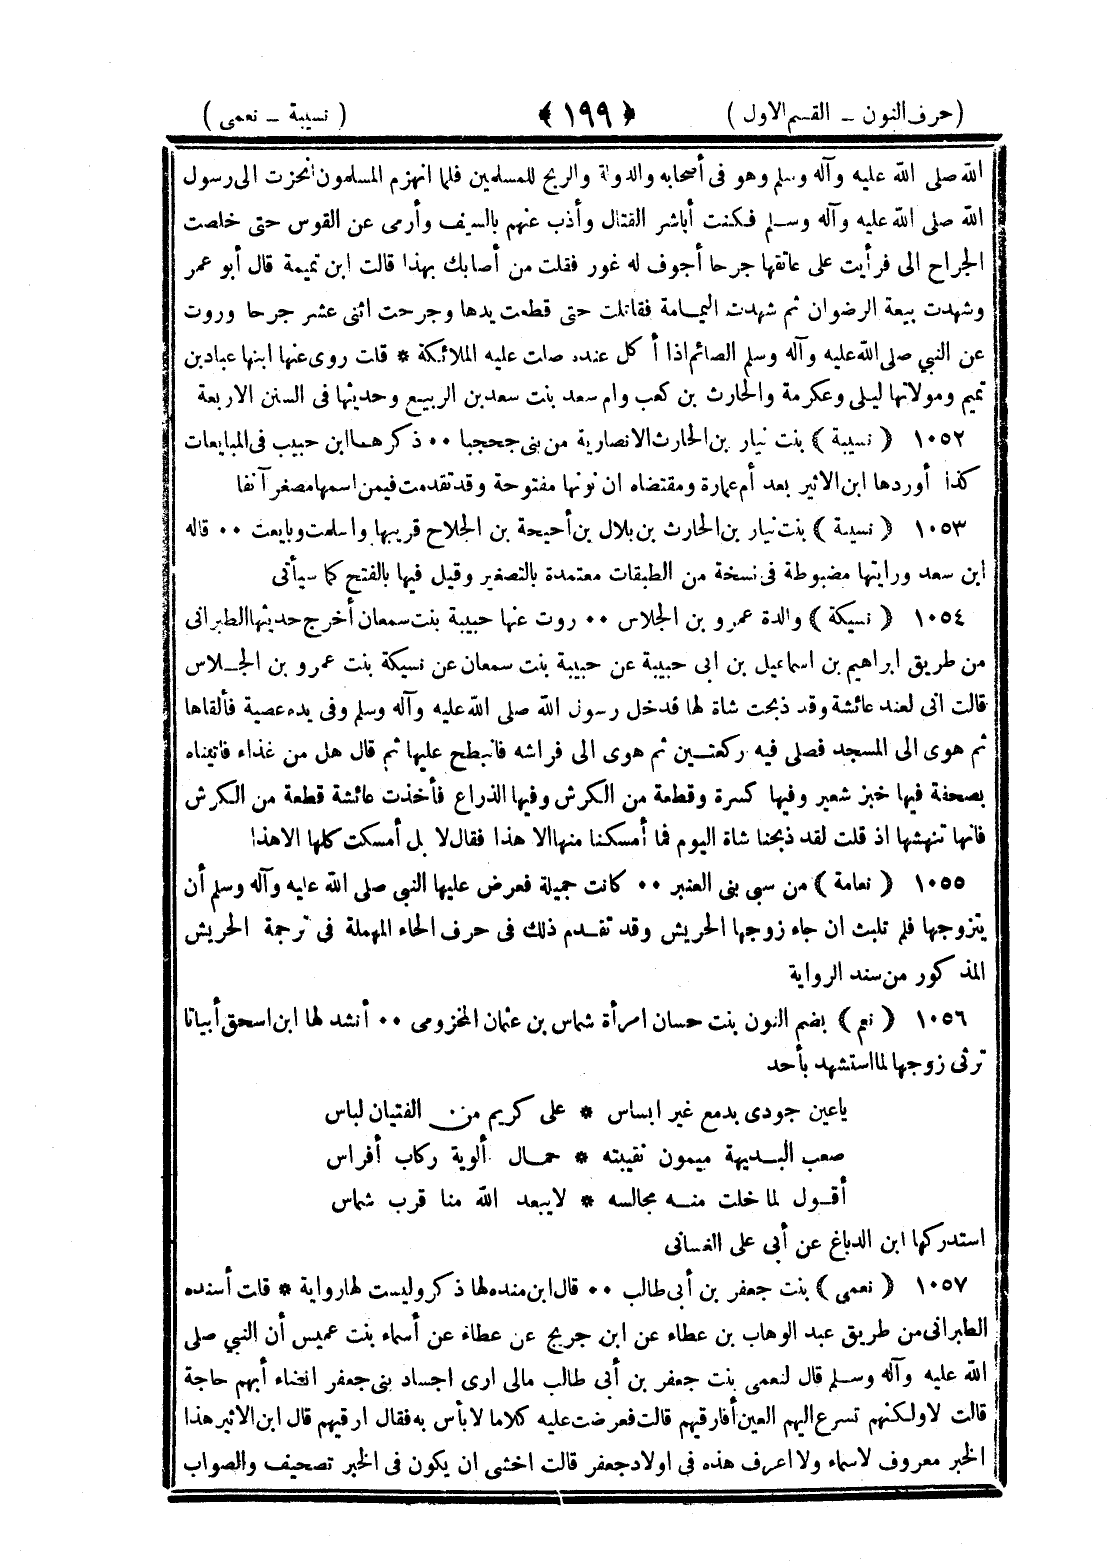 ( حرف النون – القسم الاول )
﴿ ١٩٩ ﴾
( نسيبة – نعمى )
الله صلى الله عليه وآله وسلم وهو فى أصحابه والدولة والريح للمسلمين فلما انهزم المسلمون انحزت الى رسول
الله صلى الله عليه وآله وسلم فكنت أباشر القتال وأذب عنهم بالسيف وأرمى عن القوس حتى خلصت
الجراح الى فرأيت على عاتقها جرحا أجوف له غور فقلت من أصابك بهذا قالت ابن تميمة قال أبو عمر
وشهدت بيعة الرضوان ثم شهدت اليمامة فقاتلت حتى قطعت يدها وجرحت اثنى عشر جرحا وروت
عن النبي صلى الله عليه وآله وسلم الصائم اذا أكل عنده صلت عليه الملائكة * قلت روى عنها ابنها عباد بن
تميم ومولاتها ليلى وعكرمة والحارث بن كعب وام سعد بنت سعد بن الربيع وحديثها فى السنن الاربعة
١٠٥٢ ( نسيبة ) بنت نيار بن الحارث الانصارية من بنى جحجبا ٠٠ ذكرهما ابن حبيب فى المبايعات
كذا أوردها ابن الاثير بعد أم عمارة ومقتضاه ان نونها مفتوحة وقد تقدمت فيمن اسمها مصغر آنفا
١٠٥٣ ( نسيبة ) بنت نيار بن الحارث بن بلال بن أحيحة بن الجلاح قريبها واسلمت وبايعت ٠٠ قاله
ابن سعد ورايتها مضبوطة فى نسخة من الطبقات معتمدة بالتصغير وقيل فيها بالفتح كما سيأتى
١٠٥٤ ( نسيكة ) والدة عمرو بن الجلاس ٠٠ روت عنها حبيبة بنت سمعان أخرج حديثها الطبرانى
من طريق ابراهيم بن اسماعيل بن ابى حبيبة عن حبيبة بنت سمعان عن نسيكة بنت عمرو بن الجلاس
قالت انى لعند عائشة وقد ذبحت شاة لها فدخل رسول الله صلى الله عليه وآله وسلم وفى يده عصية فألقاها
ثم هوى الى المسجد فصلى فيه ركعتين ثم هوى الى فراشه فانبطح عليها ثم قال هل من غذاء فاتيناه
بصحفة فيها خبز شعير وفيها كسرة وقطعة من الكرش وفيها الذراع فأخذت عائشة قطعة من الكرش
فانها تنهشها اذ قلت لقد ذبحنا شاة اليوم فما أمسكنا منها الا هذا فقال لا بل أمسكت كلها الا هذا
١٠٥٥ ( نعامة ) من سبى بنى العنبر ٠٠ كانت جميلة فعرض عليها النبى صلى الله عليه وآله وسلم أن
يتزوجها فلم تلبث ان جاء زوجها الحريش وقد تقدم ذلك فى حرف الحاء المهملة فى ترجمة الحريش
المذكور من سند الرواية
١٠٥٦ ( نعم ) بضم النون بنت حسان امرأة شماس بن عثمان المخزومى ٠٠ أنشد لها ابن اسحق أبياتا
ترثى زوجها لما استشهد بأحد
ياعين جودى بدمع غير ابساس * على كريم من الفتيان لباس
صعب البديهة ميمون نقيبته * حمال ألوية ركاب أفراس
أقول لما خلت منه مجالسه * لا يبعد الله منا قرب شماس
استدركها ابن الدباغ عن أبى على الغسانى
١٠٥٧ ( نعمى ) بنت جعفر بن أبى طالب ٠٠ قال ابن منده لها ذكر وليست لها رواية * قلت أسنده
الطبرانى من طريق عبد الوهاب بن عطاء عن ابن جريج عن عطاء عن أسماء بنت عميس أن النبي صلى
الله عليه وآله وسلم قال لنعمى بنت جعفر بن أبى طالب مالى ارى اجساد بنى جعفر انضاء أبهم حاجة
قالت لا ولكنهم تسرع اليهم العين أفارقيهم قالت فعرضت عليه كلاما لا بأس به فقال ارقيهم قال ابن الاثير هذا
الخبر معروف لاسماء ولا اعرف هذه فى اولاد جعفر قالت اخشى ان يكون فى الخبر تصحيف والصواب